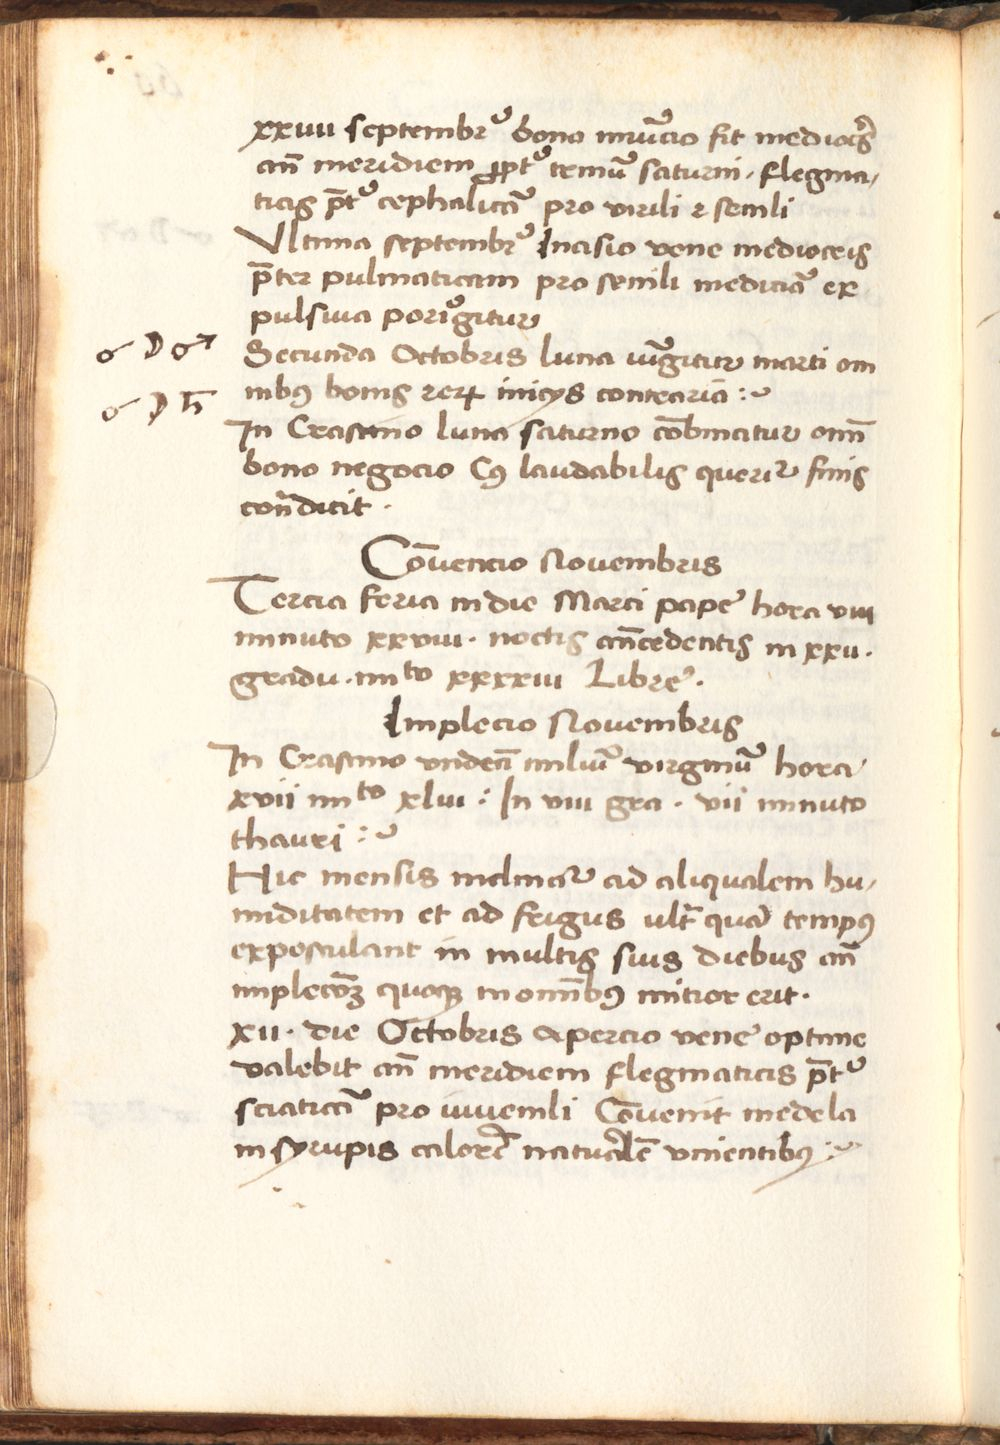 xxiiii septembrꝰ bono mūcio fit mediocꝭ
an̄ meridiem ꝓptꝰ temū saturni, flegma,
ticis p̄tꝰ cephalicā pro virili ⁊ senili
Vltima septembrꝰ Incisio vene mediocris
p̄ter pulmaticam pro senili mediciā ex
pulsiua porigitur
☌ ☽ ♂ Secunda Octobris luna iūgitur marti om
nibꝰ bonis rerꝝ inicys contrariā :~
☌ ☽ ♄
In Crastino luna saturno cōbinatur omī
bono negocio Cꝰ laudabilis querit᷑ finis
con̄dicit .
Cōuencio Nouembris
Tercia feria in die Marci pape hora viii
minuto xxviii . noctis an̄cedentis in xxv .
gradu . mi̅to xxxxiii Libre .
Implecio Nouembris
In Crastino vndeci miliū virginū hora
xvii mi̅to xlvi : In viii gra . vii minuto
thauri :~
Hic mensis inclinat᷑ ad aliqualem hu,
miditatem et ad frigus ultꝰ quā tempꝰ
expostulant in multis suis diebus an̄
implecōꝫ quoqꝫ in omībꝰ mitior erit .
xii . die Octobris Apercio vene optime
valebit an̄ meridiem flegmaticis p̄tꝰ
sciaticā pro iuuenili Cōuenit medela
in syrupis calorē naturalē vnientibꝰ :~